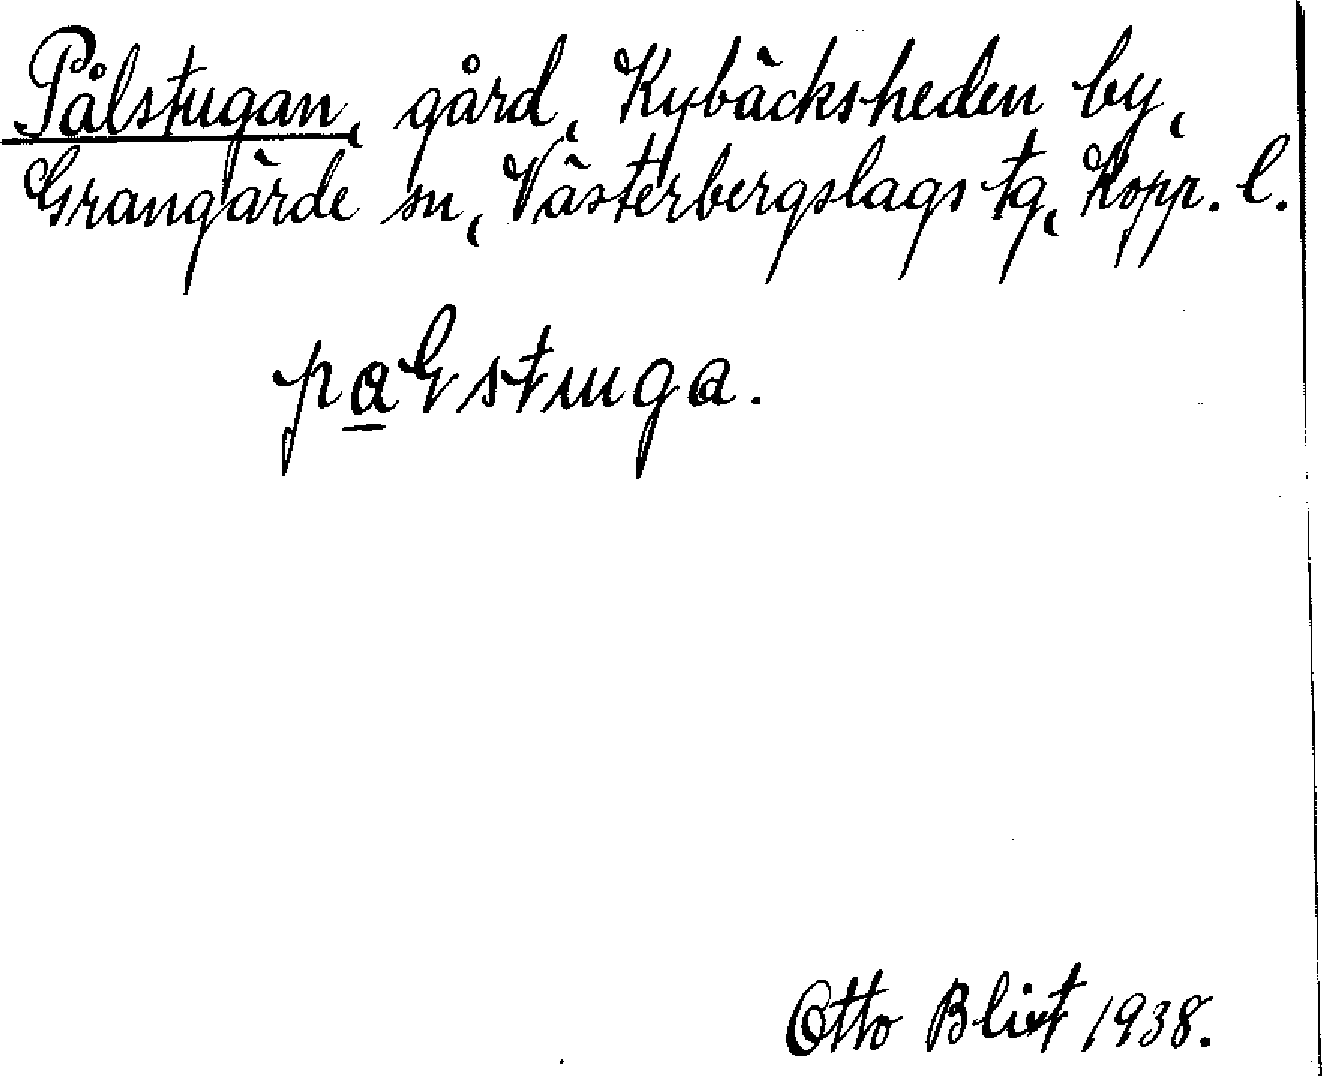 Pålstugan, gård, Kybäcksheden by,
Grangärde sn, Västerbergslags tg, Kopp. l.
palstuga.
Otto Blixt 1938.